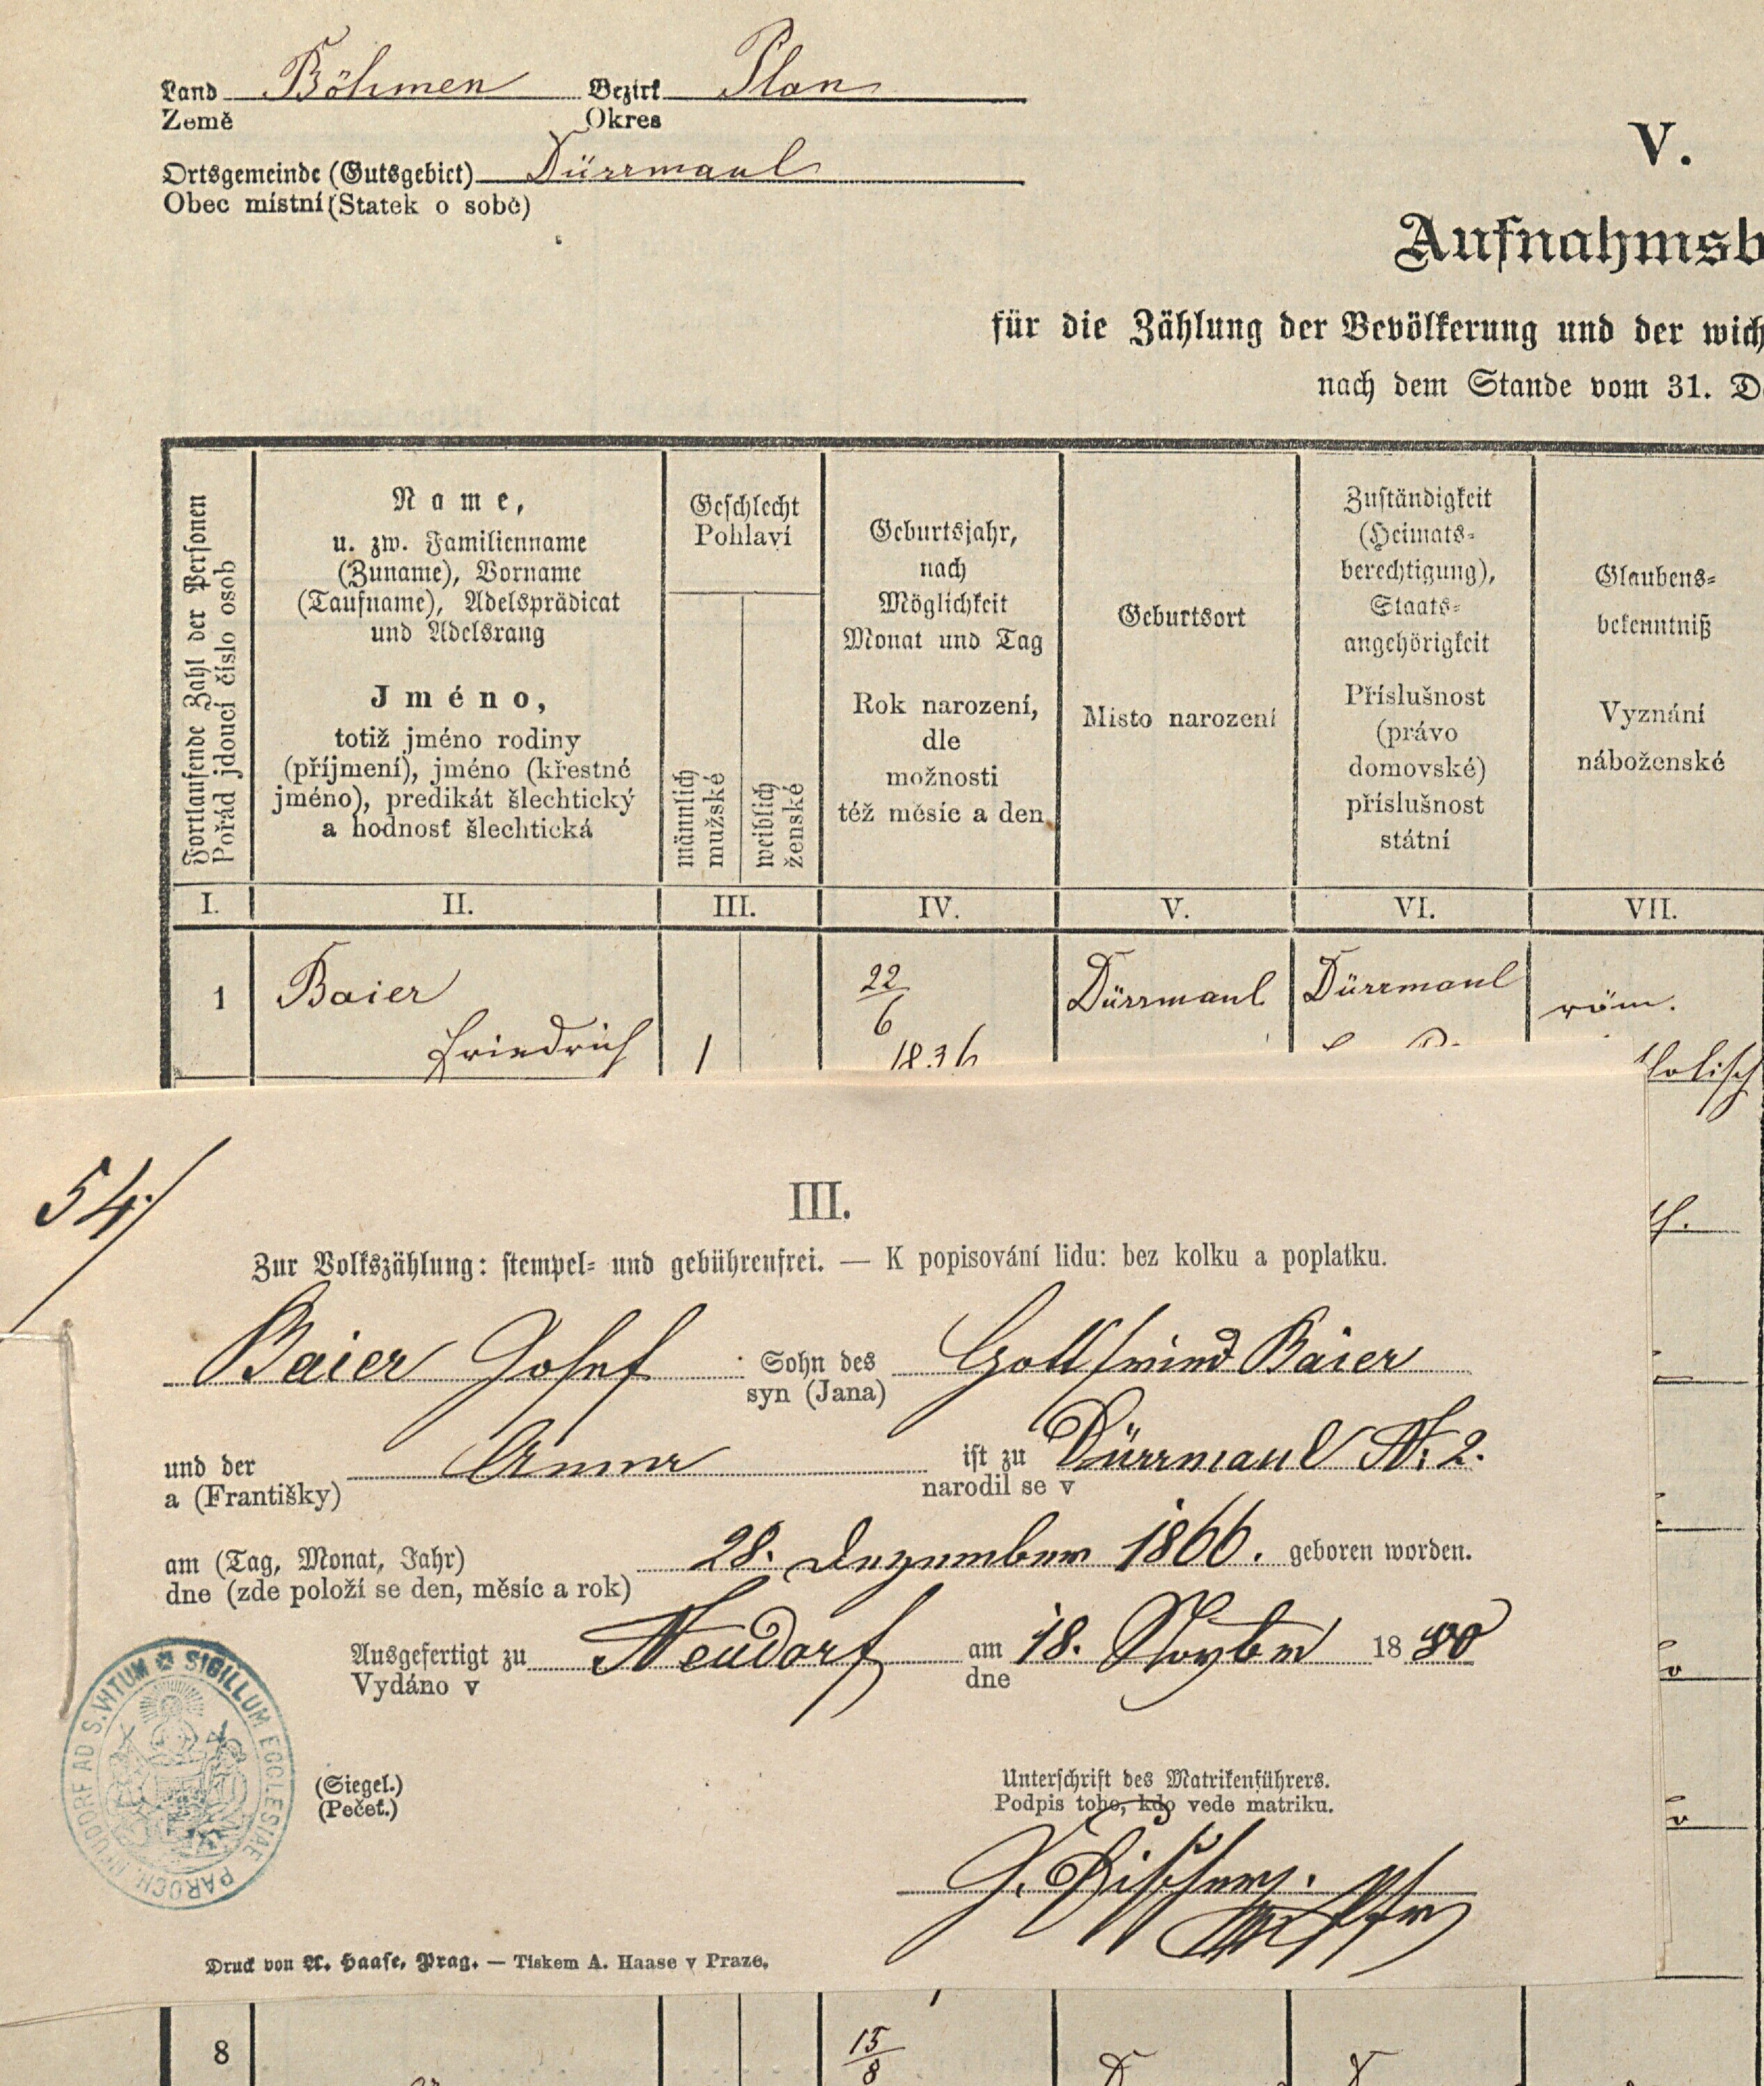 Land Böhmen Bezirk Plan
Země Okres
Ortsgemeinde (Gutsgebiet) Dürrmaul
Obec místní (Statek o sobě)
V.
Aufnahmsb
für die Zählung der Bevölkerung und der wich
nach dem Stande vom 31. D
Fortlaufende Zahl der Personen
Pořád jdoucí číslo osob
Name,
u. zw. Familienname
(Zuname), Vorname
(Taufname), Adelsprädicat
und Adelsrang
Jméno,
totiž jméno rodiny
(příjmení), jméno (křestné
jméno), predikát šlechtický
a hodnosť šlechtická
Geschlecht
Pohlaví
männlich
mužské
weiblich
ženské
Geburtsjahr,
nach
Möglichkeit
Monat und Tag
Rok narození,
dle
možnosti
též měsíc a den
Geburtsort
Místo narození
Zuständigkeit
(Heimats-
berechtigung),
Staats-
angehörigkeit
Příslušnost
(právo
domovské)
příslušnost
státní
Glaubens-
bekenntniß
Vyznání
náboženské
I. II. III. IV. V. VI. VII.
1 Baier 22/6 Dürrmaul Dürrmaul röm.
Friedrich 1 1836
tholisch
54/
III.
Zur Volkszählung: stempel- und gebührenfrei. — K popisování lidu: bez kolku a poplatku.
Baier Josef Sohn des Gottfried Baier
syn (Jana)
und der Anna ist zu Dürrmaul N: 2.
a (Františky) narodil se v
am (Tag, Monat, Jahr) 28. Dezember 1866. geboren worden.
dne (zde položí se den, měsíc a rok)
Ausgefertigt zu Neudorf am 18. Novber 1880
Vydáno v dne
SIGILLUM ECCLESIAE PAROCH. NEUDORF AD S. VITUM
(Siegel.)
(Pečeť.)
Unterschrift des Matrikenführers.
Podpis toho, kdo vede matriku.
Pfr
Druck von A. Haase, Prag. — Tiskem A. Haase v Praze.
8 15/8